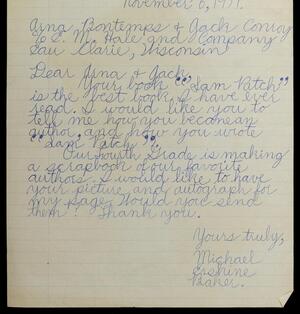 November 6, 1971.
Arna Bontemps & Jack Conroy
% E. M. Hale and Company
Eau Clarie, Wisconsin
Dear Arna & Jack,
Your book "Sam Patch"
is the best book I have ever
read. I would like you to
tell me how you becamean
author, and how you wrote
"Sam Patch".
Our fourth Grade is making
a scrapbook of our favorite
authors. I would like to have
your picture and autograph for
my page. Would you send
them? Thank you.
Yours truly,
Michael
Erskine
Baker.